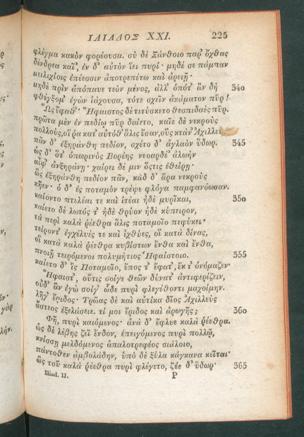 ΙΛΙΑΔΟΣ XXI. 225
φλέγμα κακὸν φορέουσα. σὺ δὲ Ξάνθοιο παρ' ὄχθας
δένδρεα καῖ', ἐν δ' αὐτὸν ἵει πυρί· μηδέ σε πάμπαν
μειλιχίοις ἐπέεσσιν ἀποτρεπέτω καὶ ἀρειῇ·
μηδὲ πρὶν ἀπόπαυε τεὸν μένος, ἀλλ' ὁπότ' ἂν δὴ 340
φθέγξομ' ἐγὼν ἰάχουσα, τότε σχεῖν ἀκάματον πῦρ!
Ὣς ἔφαθ'· Ἥφαιστος δὲ τιτύσκετο θεσπιδαὲς πῦρ.
πρῶτα μὲν ἐν πεδίῳ πῦρ δαίετο, καῖε δὲ νεκροὺς
πολλοὺς, οἵ ῥα κατ' αὐτόθ' ἅλις ἔσαν, οὓς κτάν' Ἀχιλλεύς
πᾶν δ' ἐξηράνθη πεδίον, σχέτο δ' ἀγλαὸν ὕδωρ. 345
ὡς δ' ὅτ' ὀπωρινὸς Βορέης νεοαρδέ' ἀλωὴν
αἶψ' ἀνξηράνῃ· χαίρει δέ μιν ὅστις ἐθείρῃ·
ὣς ἐξηράνθη πεδίον πᾶν, κὰδ δ' ἄρα νεκροὺς
κῆεν· ὁ δ' ἐς ποταμὸν τρέψε φλόγα παμφανόωσαν.
καίοντο πτελέαι τε καὶ ἰτέαι ἠδὲ μυρῖκαι, 350
καίετο δὲ λωτός τ' ἠδὲ θρύον ἠδὲ κύπειρον,
τὰ περὶ καλὰ ῥέεθρα ἅλις ποταμοῖο πεφύκει·
τείροντ' ἐγχέλυές τε καὶ ἰχθύες, οἳ κατὰ δίνας,
οἳ κατὰ καλὰ ῥέεθρα κυβίστων ἔνθα καὶ ἔνθα,
πνοιῇ τειρόμενοι πολυμήτιος Ἡφαίστοιο. 355
καίετο δ' ἲς Ποταμοῖο, ἔπος τ' ἔφατ', ἔκ τ' ὀνόμαζεν·
Ἥφαιστ', οὔτις σοίγε θεῶν δύνατ' ἀντιφερίζειν,
οὐδ' ἂν ἐγὼ σοίγ' ὧδε πυρὶ φλεγέθοντι μαχοίμην.
λῆγ' ἔριδος· Τρῶας δὲ καὶ αὐτίκα δῖος Ἀχιλλεὺς
ἄστεος ἐξελάσειε. τί μοι ἔριδος καὶ ἀρωγῆς; 360
Φῆ, πυρὶ καιόμενος· ἀνὰ δ' ἔφλυε καλὰ ῥέεθρα.
ὡς δὲ λέβης ζεῖ ἔνδον, ἐπειγόμενος πυρὶ πολλῷ,
κνίσσῃ μελδόμενος ἁπαλοτρεφέος σιάλοιο,
πάντοθεν ἀμβολάδην, ὑπὸ δὲ ξύλα κάγκανα κεῖται·
ὣς τοῦ καλὰ ῥέεθρα πυρὶ φλέγετο, ζέε δ' ὕδωρ· 365
Iliad. II. P